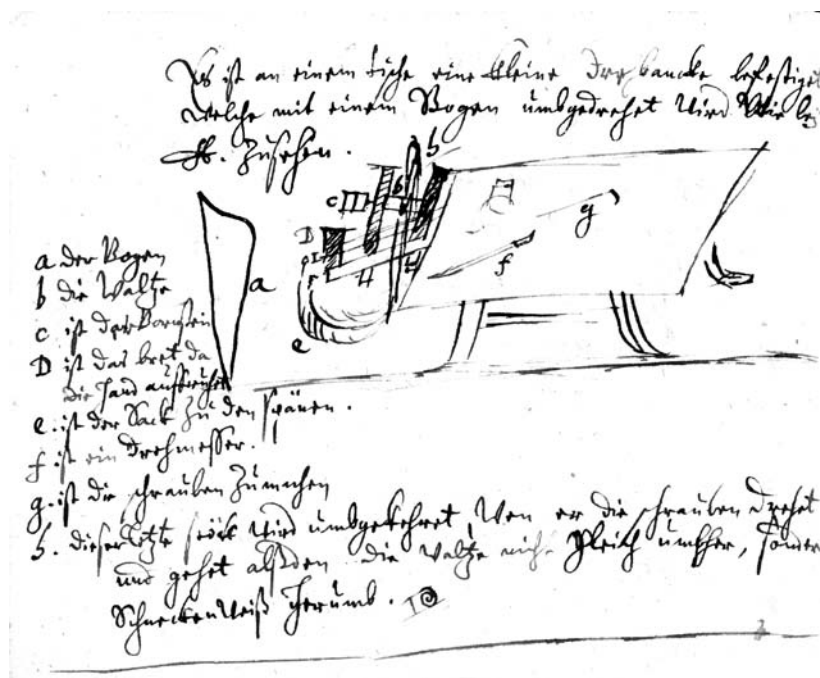 Es ist an einem Tische eine kleine Drehbancke befestiget
welche mit einem Bogen umbgedrehet wird wie bey
H. Zusehen.
h
b
c
D
g
f
a
e
a der Bogen
b die Waltze
c ist der
D ist das bret da
die Hand auffruhet
e. ist der Sack zu den spänen.
f ist ein Drehmesser.
g. ist die schrauben Zumachen
h. dieser letzte stöck wird umbgekehret, Wen er die schrauben drehet
und gehet alßden die Waltze nicht gleich umbher, sonder
Schneckenweiß herumb.